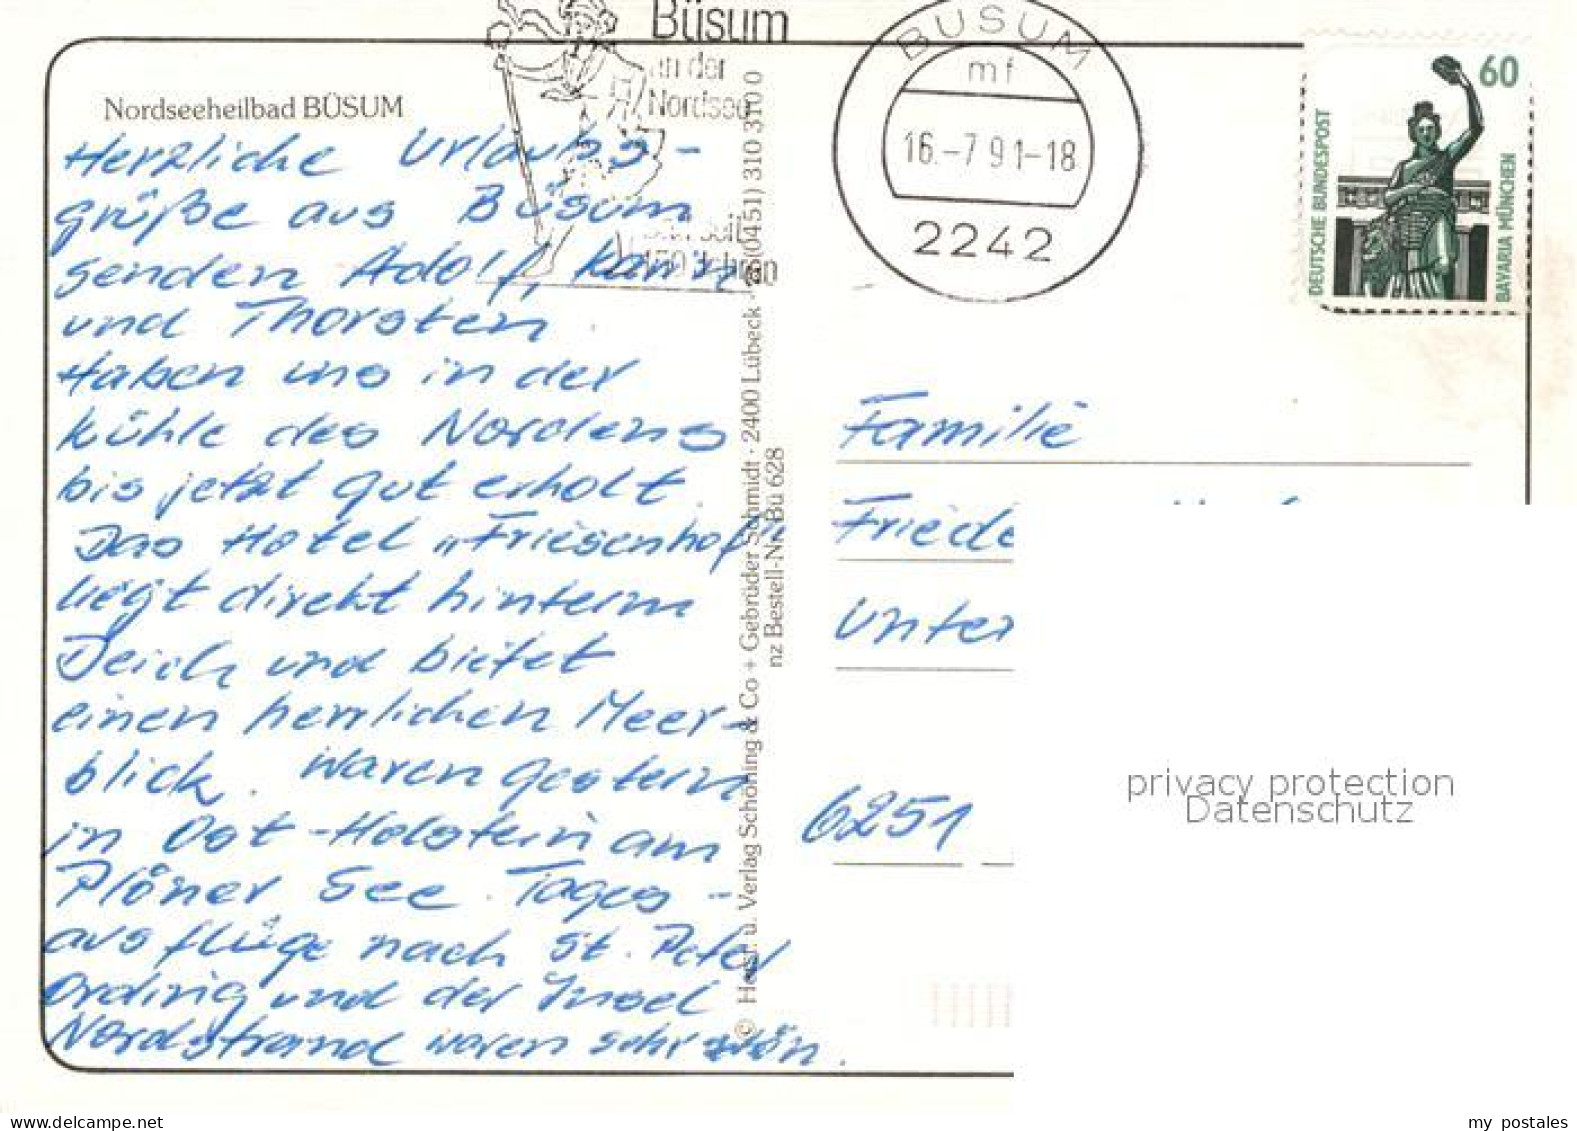 Büsum
an der
Nordsee
BÜSUM
mf
16.-7 91-18
2242
60
DEUTSCHE BUNDESPOST
BAVARIA MÜNCHEN
Nordseeheilbad BÜSUM
Herzliche Urlaubs-
grüße aus Büsum
senden Adolf, Karin
und Thorsten
Haben uns in der
Kühle des Nordens
bis jetzt gut erholt.
Das Hotel „Friesenhof"
liegt direkt hinterm
Deich und bietet
einen herrlichen Meer-
blick. Waren gestern
in Ost-Holstein am
Plöner See. Tages-
ausflüge nach St. Peter
Ording und der Insel
Nordstrand waren sehr schön.
© Herst. u. Verlag Schöning & Co + Gebrüder Schmidt · 2400 Lübeck · (0451) 310 310 0
nz Bestell-Nr. Bü 628
Familie
Friede
Unter
6251
privacy protection
Datenschutz
my postales